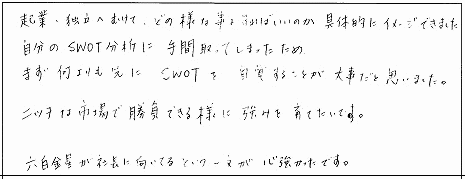 起業・独立へむけて、どの様な事をすればいいのか 具体的にイメージできました
自分のSWOT分析に 手間取ってしまったため、
まず何よりも先に SWOT を 自覚することが 大事だと思いました。
ニッチな市場で勝負できる様に 強みを 育てたいです。
六白金星が社長に向いてるという一文が 心強かったです。